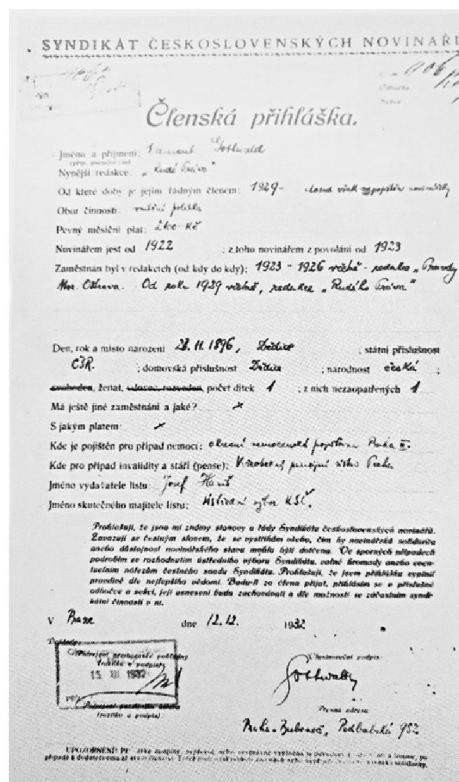 SYNDIKÁT ČESKOSLOVENSKÝCH NOVINÁŘŮ
Členská přihláška.
Jméno a příjmení: Klement Gottwald
Nynější redakce: „Rudé Právo“
Od které doby je jejím řádným členem: 1929-
Obor činnosti: vnitřní politika
Pevný měsíční plat: Kč
Novinářem jest od 1922 ; z toho novinářem z povolání od 1923
Zaměstnán byl v redakcích (od kdy do kdy): 1923 - 1926 včetně - redakce „Pravdy
Mor. Ostrava. Od roku 1929 včetně, redakce „Rudého Práva“
Den, rok a místo narození 23.11.1896, Dědice ; státní příslušnost
ČSR. ; domovská příslušnost Dědice ; národnost česká ;
svoboden, ženat, vdovec, rozveden, počet dítek 1 ; z nich nezaopatřených 1
Má ještě jiné zaměstnání a jaké? x
S jakým platem: x
Kde je pojištěn pro případ nemoci: okresní nemocenská pojišťovna Praha
Kde pro případ invalidity a stáří (pense): Všeobecný pensijní ústav Praha
Jméno vydavatele listu: Josef Haniš
Jméno skutečného majitele listu: Ústřední výbor KSČ.
Prohlašuji, že jsou mi známy stanovy a řády Syndikátu československých novinářů.
Zavazuji se čestným slovem, že se vystříhám všeho, čím by novinářská solidarita
anebo důstojnost novinářského stavu mohla býti dotčena. Ve sporných případech
podrobím se rozhodnutím ústředního výboru Syndikátu, valné hromady anebo even-
tuelním nálezům čestného soudu Syndikátu. Prohlašuji, že jsem přihlášku vyplnil
pravdivě dle nejlepšího vědomí. Budu-li za člena přijat, přihlásím se u příslušné
odbočce a sekci, její usnesení budu zachovávati a dle možnosti se zúčastním syndi-
kální činnosti v ní.
V Praze dne 12.12. 1932
15 XII 1932
Vlastnoruční podpis:
Gottwald
Přesná adresa:
Praha-Bubeneč, Podbabská
UPOZORNĚNÍ!